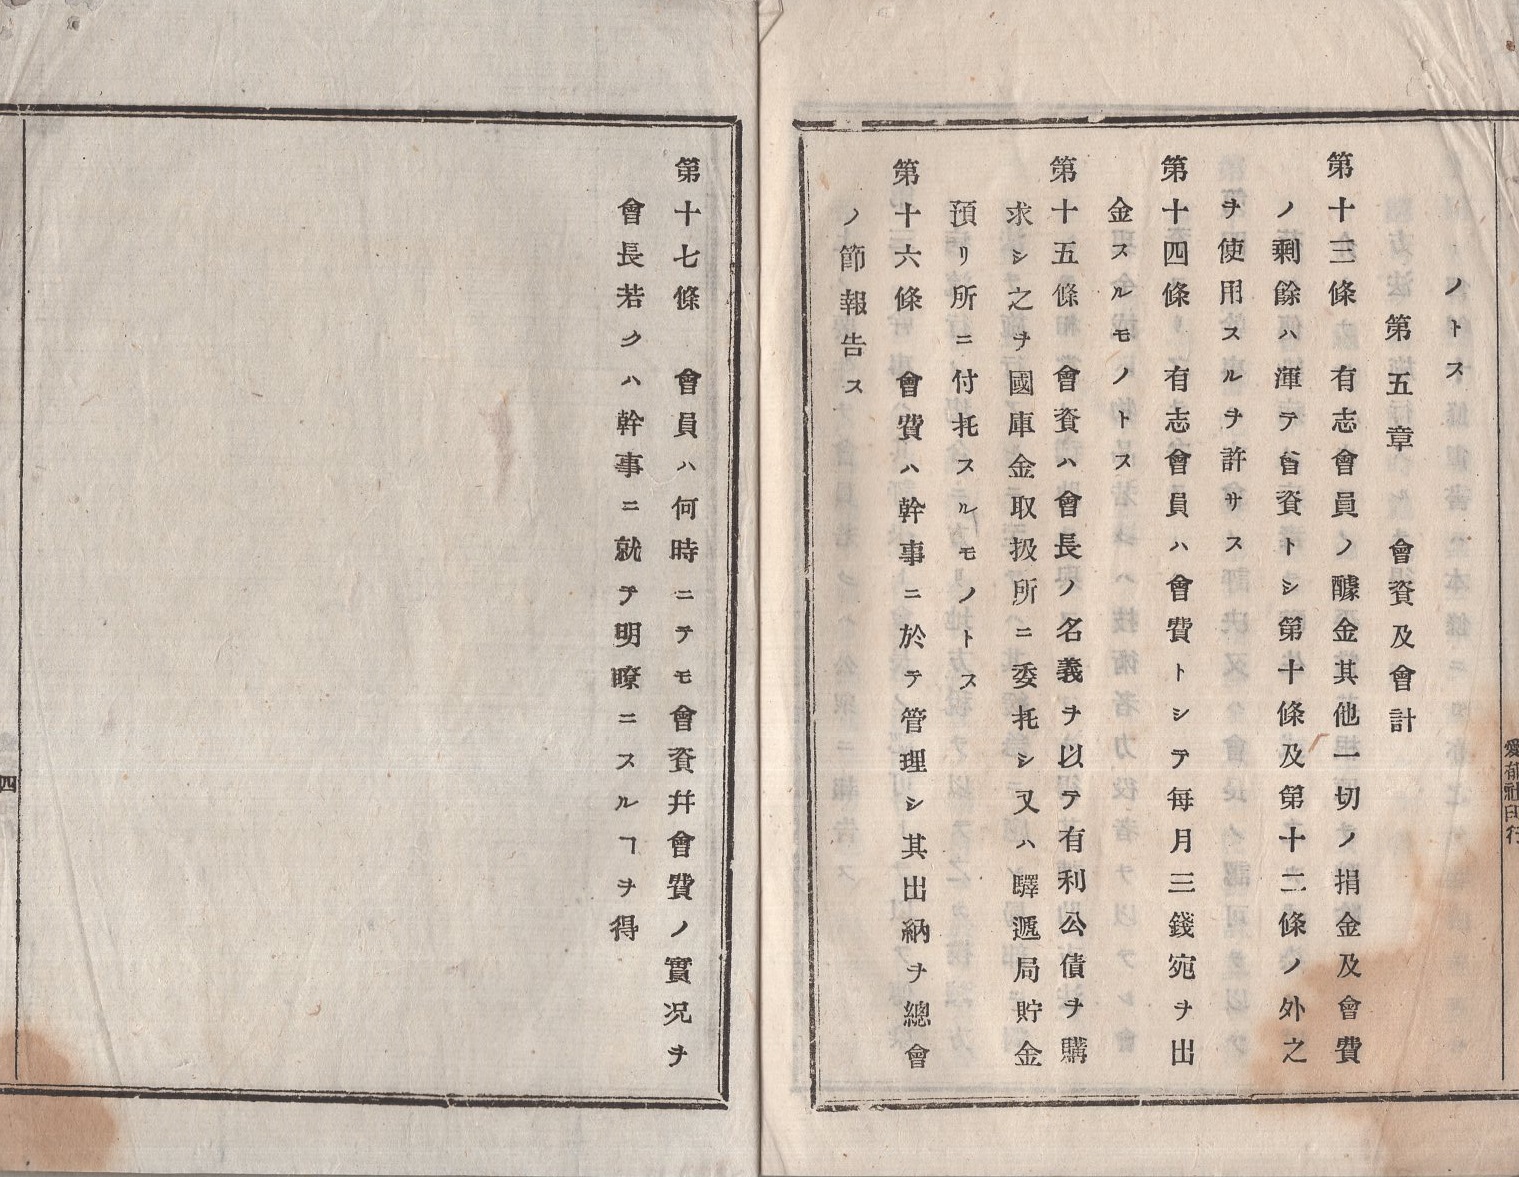 ノトス
第五章　會資及會計
第十三條　有志會員ノ醵金其他一切ノ捐金及會費
ノ剩餘ハ渾テ省資トシ第十條及第十二條ノ外之
ヲ使用スルヲ許サス
第十四條　有志會員ハ會費トシテ毎月三錢宛ヲ出
金スルモノトス
第十五條　會資ハ會長ノ名義ヲ以テ有利公債ヲ購
求シ之ヲ國庫金取扱所ニ委托シ又ハ驛遞局貯金
預リ所ニ付托スルモノトス
第十六條　會費ハ幹事ニ於テ管理シ其出納ヲ總會
ノ節報告ス
愛郁社印行
第十七條　會員ハ何時ニテモ會資幷會費ノ實況ヲ
會長若クハ幹事ニ就テ明瞭ニスルヿヲ得
四